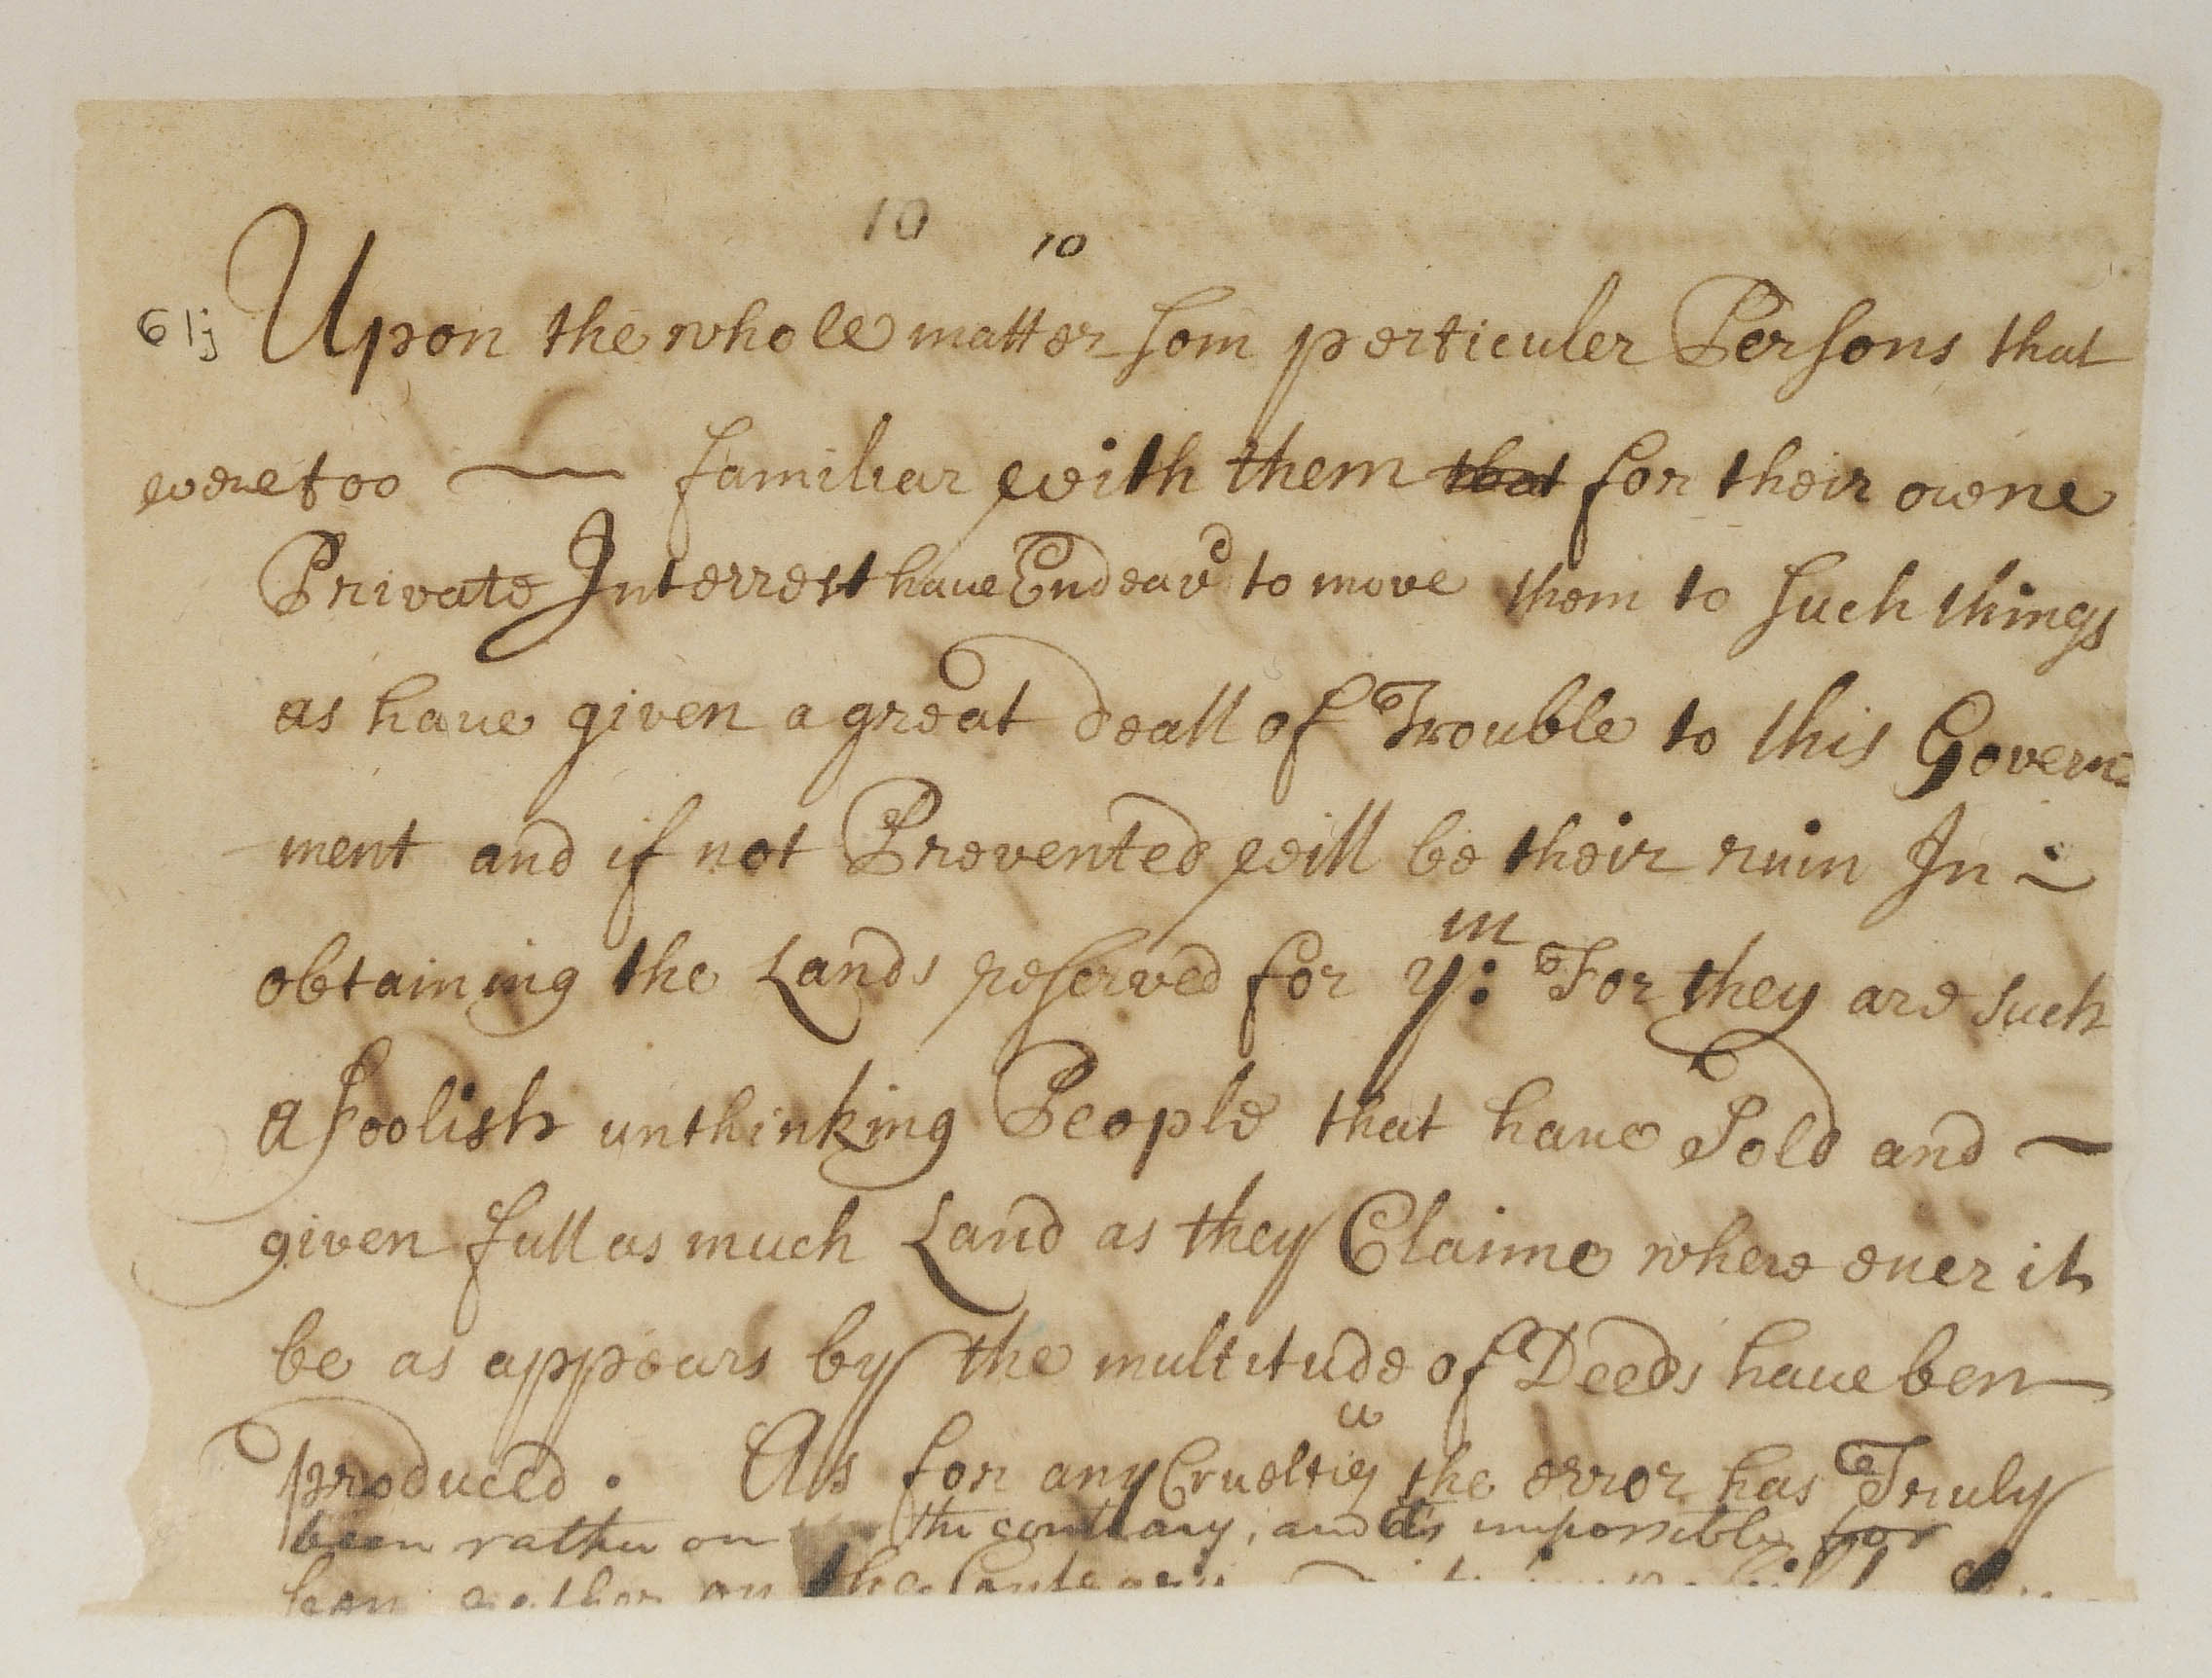 10 10
61j Upon the whole matter som perticuler Persons that
were too — familiar with them that for their owne
Private Interrest haue Endeavd to move them to such things
as haue given a great deall of Trouble to this Govern=
ment and if not Prevented will be their ruin In
obtaining the Lands reserved for ym: For they are such
a foolish unthinking People that haue Sold and —
given full as much Land as they Claime where euer it
be as appears by the multitude of Deeds haue ben
produced. As for any Cruelties the error has Truly
been rather on the contrary, and its impossible for
ben rather on the Contrary